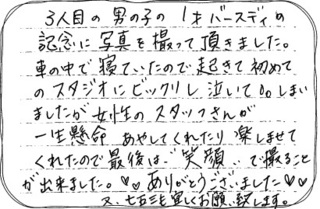 3人目の男の子の1才バースディの
記念に写真を撮って頂きました。
車の中で寝ていたので起きて初めて
のスタジオにビックリし泣いてしまい
ましたが女性のスタッフさんが
一生懸命あやしてくれたり楽しませて
くれたので最後は"笑顔"で撮ること
が出来ました。♡♡ありがとうございました♡♡
又、七五三も宜しくお願い致します。